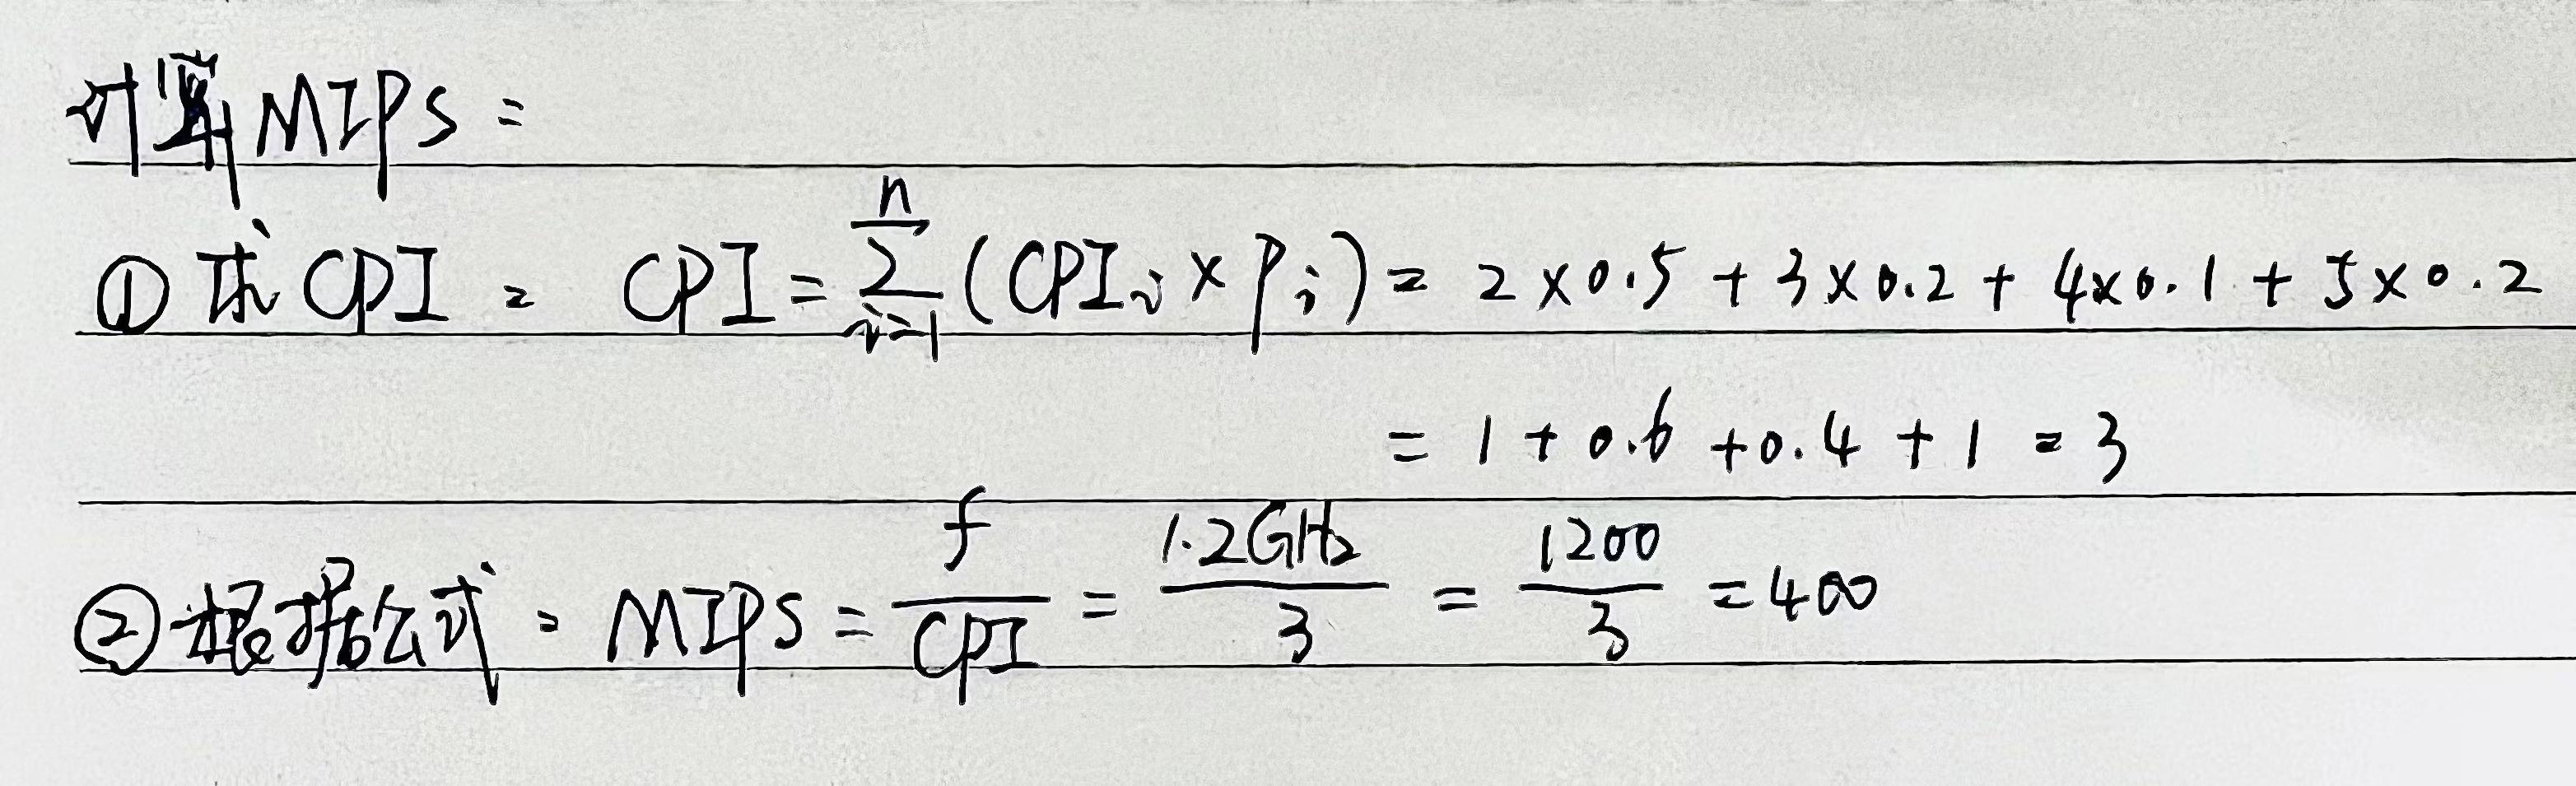 计算MIPS：
①求CPI： CPI = \sum_{i=1}^{n} (CPI_i × P_i) = 2×0.5 + 3×0.2 + 4×0.1 + 5×0.2
= 1 + 0.6 + 0.4 + 1 = 3
②根据公式： MIPS = \frac{f}{CPI} = \frac{1.2GHz}{3} = \frac{1200}{3} = 400